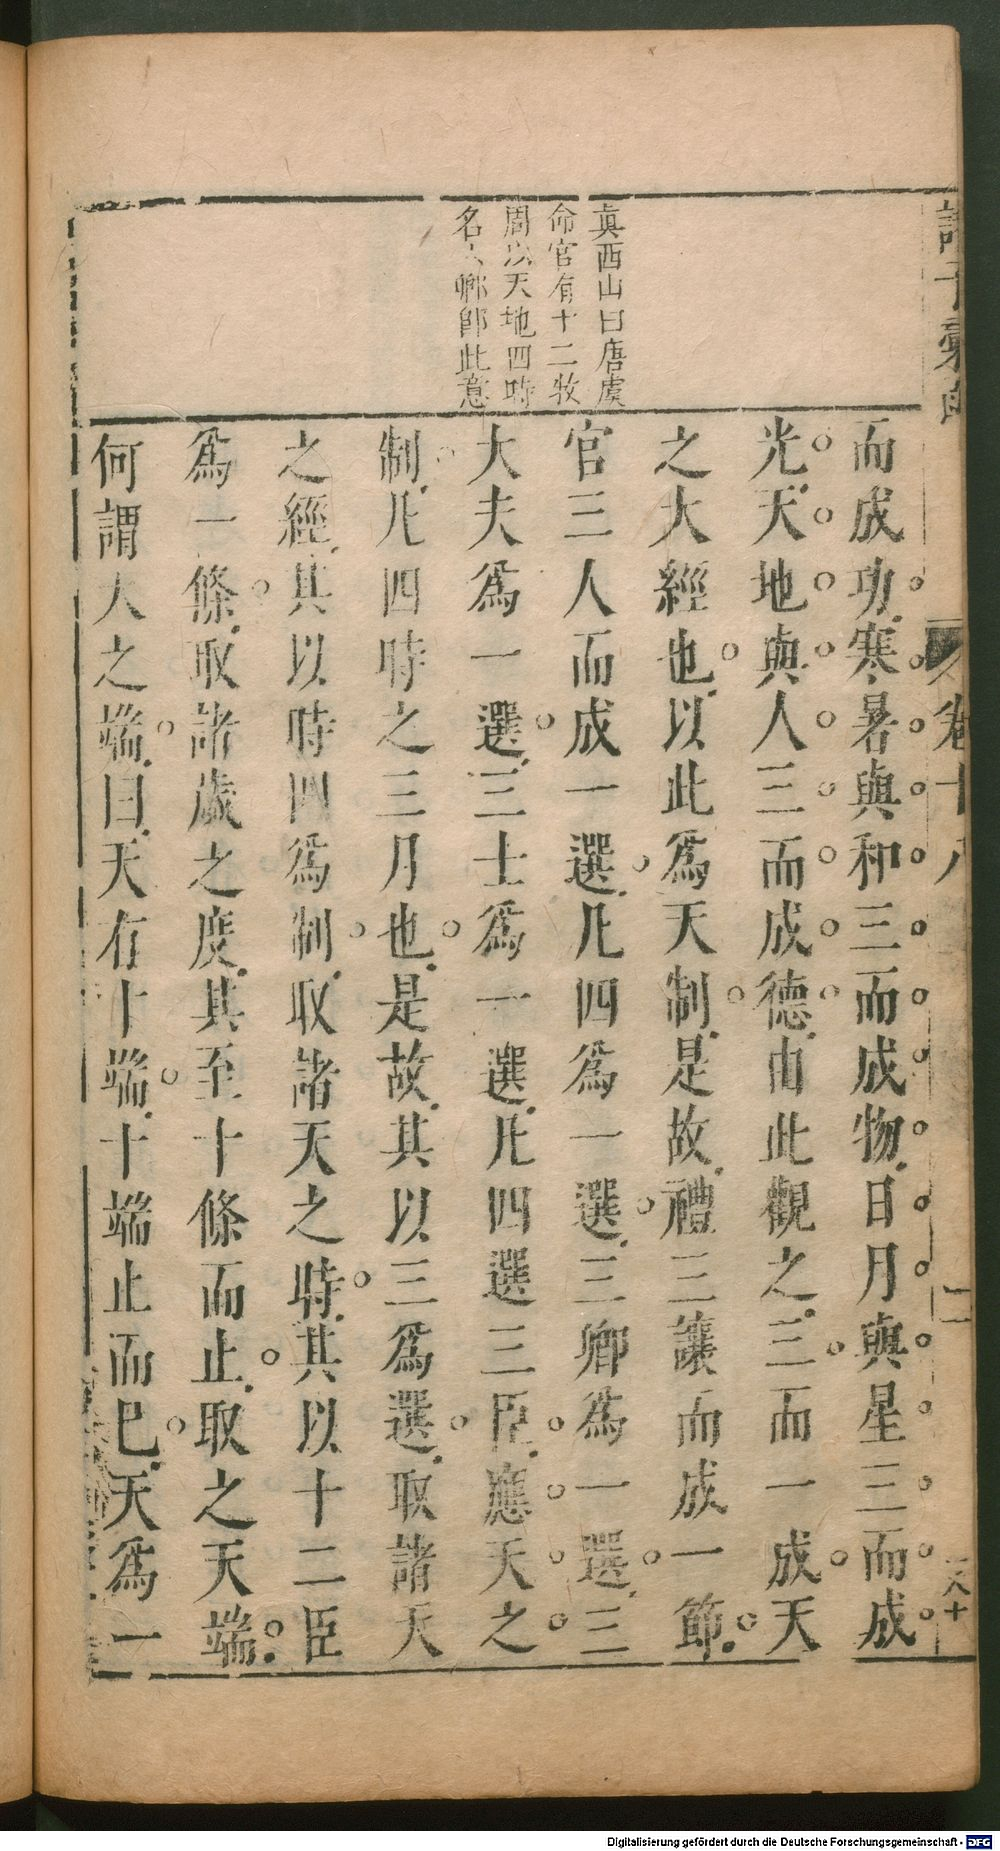 卷十八
二
而成功寒暑與和三而成物日月與星三而成
光天地與人三而成德由此觀之三而一成天
之大經也以此為天制是故禮三讓而成一節
官三人而成一選凡四為一選三卿為一選三
大夫為一選三士為一選凡四選三臣應天之
制凡四時之三月也是故其以三為選取諸天
之經其以時四為制取諸天之時其以十二臣
為一條取諸歲之度其至十條而止取之天端
何謂大之端曰天有十端十端止而已天為一
真西山曰唐虞
命官有十二牧
周以天地四時
名六卿即此意
Digitalisierung gefördert durch die Deutsche Forschungsgemeinschaft - DFG